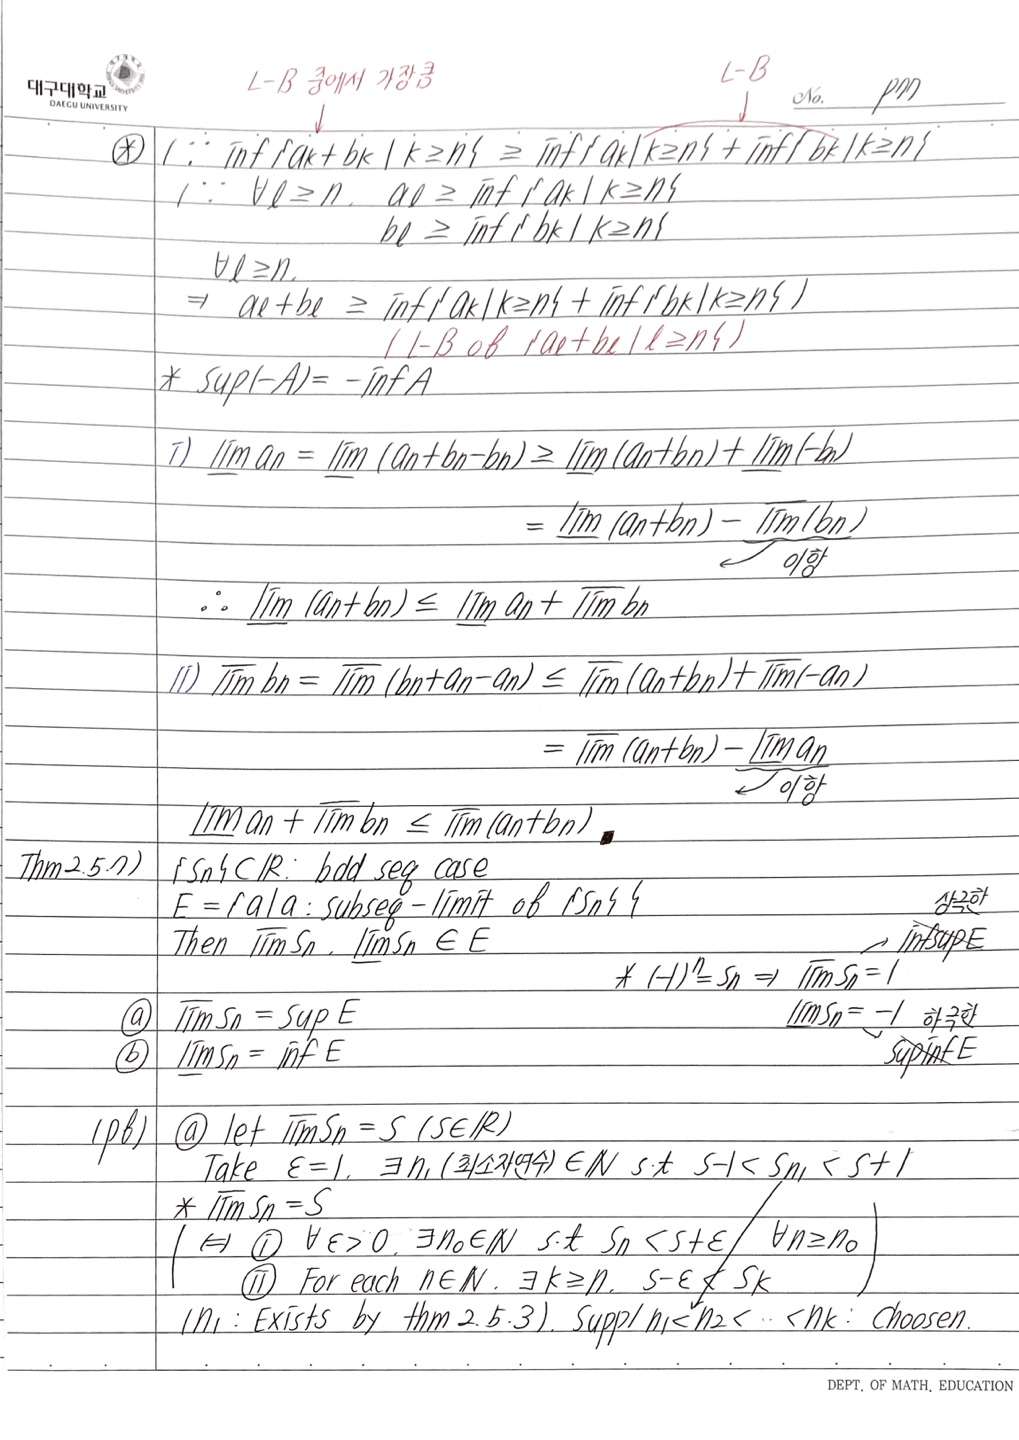 대구대학교
DAEGU UNIVERSITY
L-B 중에서 가장큼
L-B
No. p77
⊛ (∵ inf{ak+bk | k≥n} ≥ inf{ak | k≥n} + inf{bk | k≥n}
(∵ ∀l≥n. al ≥ inf{ak | k≥n}
bl ≥ inf{bk | k≥n}
∀l≥n.
⇒ al+bl ≥ inf{ak | k≥n} + inf{bk | k≥n})
(L-B of {al+bl | l≥n})
* sup(-A) = -inf A
i) l̲i̲m̲ an = l̲i̲m̲ (an+bn-bn) ≥ l̲i̲m̲ (an+bn) + l̲i̲m̲ (-bn)
= l̲i̲m̲ (an+bn) - l̅i̅m̅ (bn)
이항
∴ l̲i̲m̲ (an+bn) ≤ l̲i̲m̲ an + l̅i̅m̅ bn
ii) l̅i̅m̅ bn = l̅i̅m̅ (bn+an-an) ≤ l̅i̅m̅ (an+bn) + l̅i̅m̅ (-an)
= l̅i̅m̅ (an+bn) - l̲i̲m̲ an
이항
l̲i̲m̲ an + l̅i̅m̅ bn ≤ l̅i̅m̅ (an+bn) ■
Thm2.5.7) {Sn} ⊂ ℝ: bdd seq case
E = {a | a: subseq-limit of {Sn}}
상극한
Then l̅i̅m̅ Sn, l̲i̲m̲ Sn ∈ E
infsupE
* (-1)ⁿ = Sn ⇒ l̅i̅m̅ Sn = 1
ⓐ l̅i̅m̅ Sn = sup E
l̲i̲m̲ Sn = -1 하극한
ⓑ l̲i̲m̲ Sn = inf E
supinfE
(pf) ⓐ let l̅i̅m̅ Sn = S (S∈ℝ)
Take ε=1. ∃n₁(최소자연수) ∈ ℕ s.t S-1 < Sn₁ < S+1
* l̅i̅m̅ Sn = S
⇔ ⓘ ∀ε>0. ∃n₀∈ℕ s.t Sn < S+ε ∀n≥n₀
ⓘⓘ For each n∈ℕ. ∃k≥n. S-ε < Sk
(n₁: Exists by thm 2.5.3). Supp) n₁<n₂< ‥ <nk: choosen.
DEPT. OF MATH. EDUCATION